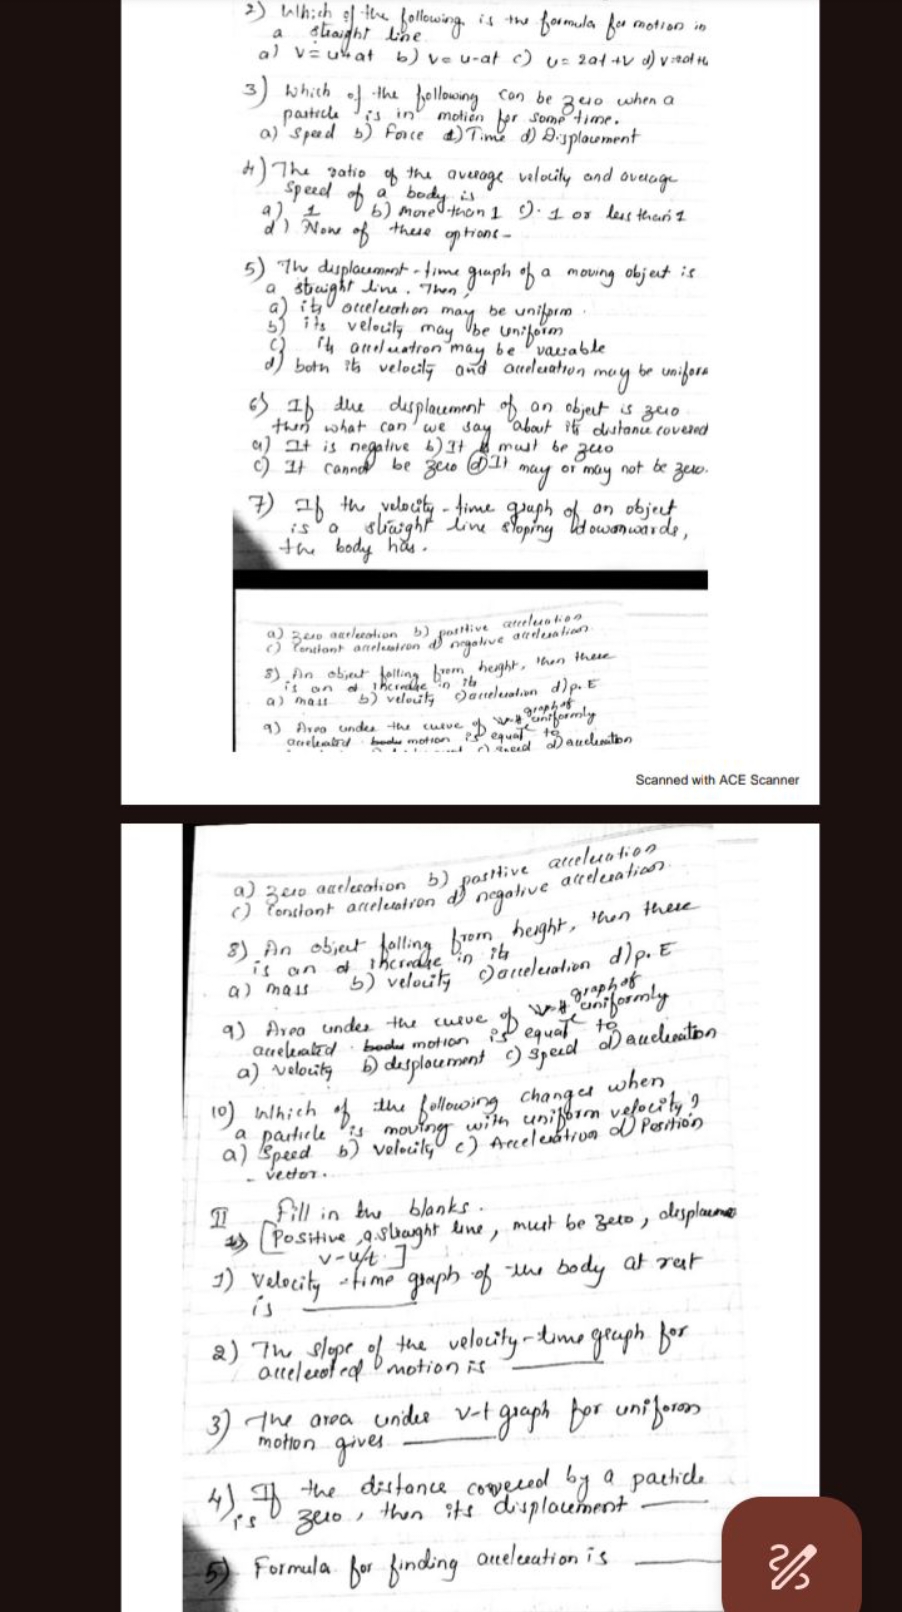 2) Which of the following is the formula for motion in
a straight line
a) v = u+at b) v = u-at c) u = 2at +v d)
3) Which of the following can be zero when a
particle is in motion for some time.
a) Speed b) Force c) Time d) Displacement
4) The ratio of the average velocity and average
Speed of a body is
a) 1 b) more than 1 c). 1 or less than 1
d) None of these options-
5) The displacement-time graph of a moving object is
a straight line. Then,
a) its acceleration may be uniform.
b) its velocity may be uniform
c) its acceleration may be variable
d) both its velocity and acceleration may be uniform
6) If the displacement of an object is zero
then what can we say about its distance covered
a) It is negative b) It must be zero
c) It cannot be zero d) It may or may not be zero.
7) If the velocity-time graph of an object
is a straight line sloping downwards,
the body has.
a) Zero acceleration b) positive acceleration
c) Constant acceleration d) negative acceleration.
8) An object falling from height, then there
is an increase in its
a) mass b) velocity c) acceleration d) p.E
graph of
9) Area under the curve of v-t uniformly
accelerated body motion is equal to
c) speed d) acceleration
Scanned with ACE Scanner
a) Zero acceleration b) positive acceleration
c) Constant acceleration d) negative acceleration.
8) An object falling from height, then there
is an increase in its
a) mass b) velocity c) acceleration d) p.E
graph of
9) Area under the curve of v-t uniformly
accelerated body motion is equal to
a) velocity b) displacement c) speed d) acceleration
10) Which of the following changes when
a particle is moving with uniform velocity?
a) Speed b) velocity c) Acceleration d) Position
- vector.
II Fill in the blanks.
[Positive, a straight line, must be zero, displaceme
v-u/t.]
1) Velocity-time graph of the body at rest
is
2) The slope of the velocity-time graph for
accelerated motion is
3) The area under v-t graph for uniform
motion gives
4) If the distance covered by a particle
is zero, then its displacement
5) Formula for finding acceleration is